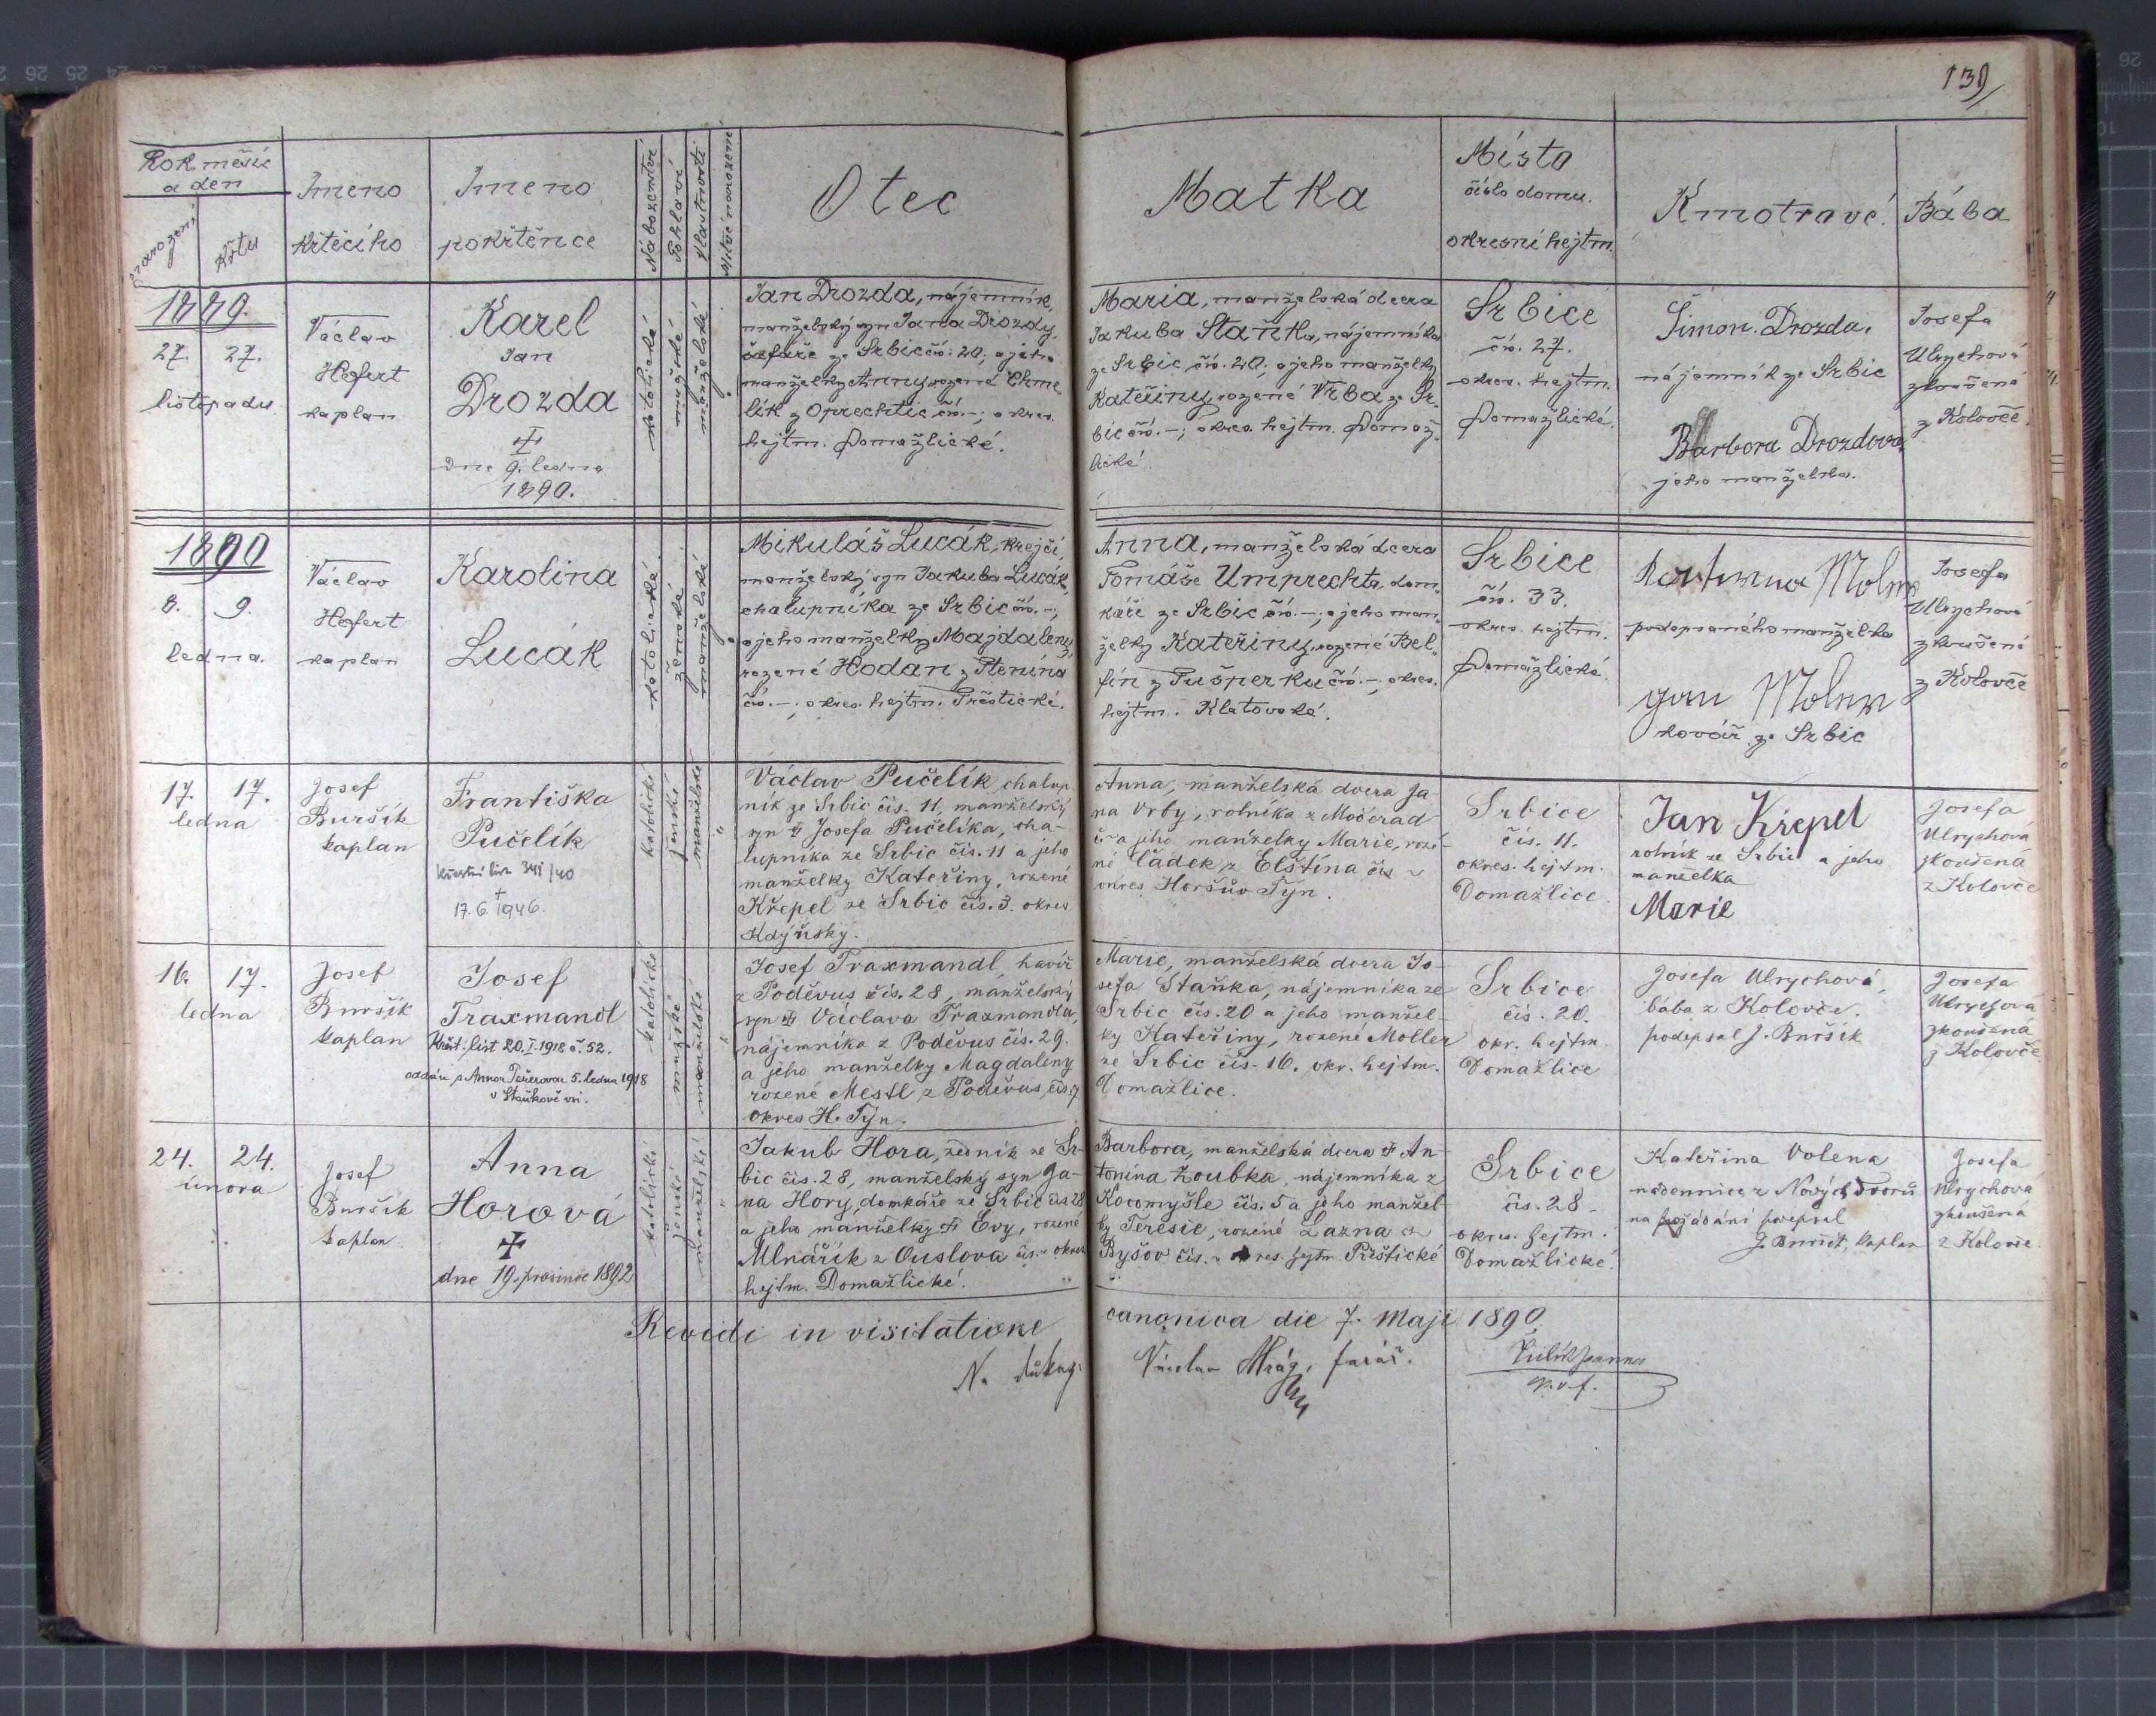 139
Rok měsíc
a den
narození
křtu
Jmeno
křtěcího
Jmeno
pokřtěnce
Náboženství
Pohlaví
Vlastnosti
Mrtvě narozené
Otec
Matka
Místo
číslo domu.
okresní hejtm.
Kmotrové.
Bába
1889.
27. 27.
listopadu
Václav
Hefert
kaplan
Karel
Jan
Drozda
dne 9. ledna
1890.
katolické
mužské
manželské
Jan Drozda, nájemník,
manželský syn Jana Drozdy,
šafáře ze Srbic čís. 20; a jeho
manželky Anny, rozené Chme-
lík z Oprechtic čís. -; okres.
hejtm. Domažlické.
Maria, manželská dcera
Jakuba Staňka, nájemníka
ze Srbic, čís. 20; a jeho manželky
Kateřiny, rozené Vrba ze Sr-
bic čís. -; okres. hejtm. Domaž-
lické
Srbice
čís. 27.
okres. hejtm.
Domažlické.
Šimon Drozda,
nájemník ze Srbic
Barbora Drozdova
jeho manželka.
Josefa
Ulrychová
zkoušená
z Koloveč.
1890
8. 9.
ledna.
Václav
Hefert
kaplan
Karolina
Lucák
katolické
ženské
manželské
Mikuláš Lucák, krejčí,
manželský syn Jakuba Lucák,
chalupníka ze Srbic čís. -;
a jeho manželky Majdaleny,
rozené Hodan z Ptenína
čís. -; okres. hejtm. Přeštické.
Anna, manželská dcera
Tomáše Umprechta, dom-
káře ze Srbic čís. -; a jeho man-
želky Kateřiny, rozené Bel-
fín z Pušperku čís. -; okres.
hejtm. Klatovské.
Srbice
čís. 33.
okres. hejtm.
Domažlické
podepsaného manželka
kovář ze Srbic
Josefa
Ulrychová
zkoušená
z Koloveč
17. 17.
ledna
Josef
Buršík
kaplan
Františka
Pučelík
křestní list 341/40
†
17.6.1946.
katolické
ženské
manželské
Václav Pučelík, chalup
ník ze Srbic čís. 11, manželský
syn † Josefa Pučelíka, cha-
lupníka ze Srbic čís. 11 a jeho
manželky Kateřiny, rozené
Křepel ze Srbic čís. 3. okres
Kdýňský.
Anna, manželská dcera Ja
na Vrby, rolníka z Močerad
a jeho manželky Marie, roze-
né Čádek z Elštína čís
okres Horšův Týn.
Srbice
čís. 11.
okres. hejtm.
Domažlice.
Jan Křepel
rolník ze Srbic a jeho
manželka
Marie
Josefa
Ulrychová
zkoušená
z Koloveč
16. 17.
ledna
Josef
Buršík
kaplan
Josef
Traxmandl
Křst. list 20.I.1918 č. 52.
oddán s Annou 5. ledna 1918
v Staňkově vsi.
katolické
mužské
manželské
Josef Traxmandl, havíř
z Poděvus čís. 28, manželský
syn † Václava Traxmandla,
nájemníka z Poděvus čís. 29.
a jeho manželky Magdaleny
rozené Mestl z Poděvus čís. 7
okres H. Týn.
Marie, manželská dcera Jo-
sefa Staňka, nájemníka ze
Srbic čís. 20 a jeho manžel-
ky Kateřiny, rozené Moller
ze Srbic čís. 16. okr. hejtm.
Domažlice.
Srbice
čís. 20.
okr. hejtm.
Domažlice
Josefa Ulrychová,
bába z Koloveč.
podepsal J. Buršík
Josefa
Ulrychová
zkoušená
z Koloveč
24. 24.
února
Josef
Buršík
kaplan
Anna
Horová
dne 19. prosince 1892
katolické
ženské
manželské
Jakub Hora, zedník ze Sr-
bic čís. 28, manželský syn Ja-
na Hory, domkáře ze Srbic čís 28
a jeho manželky † Evy, rozené
Mlnářík z Ouslova čís. okres.
hejtm. Domažlické.
Barbora, manželská dcera † An-
tonína Zoubka, nájemníka z
Kocomyšle čís. 5 a jeho manžel-
ky Teresie, rozené Lazna z
Byšov čís. okres. hejtm. Přeštické
Srbice
čís. 28.
okres. hejtm.
Domažlické.
Kateřina Volena
nádennice z Nových Dvorů
na požádání podepsal
J. Buršík, kaplan
Josefa
Ulrychova
zkoušená
z Koloveč.
Revidi in visitatione canonica die 7. Maji 1890.
Na důkaz:
Václav farář.